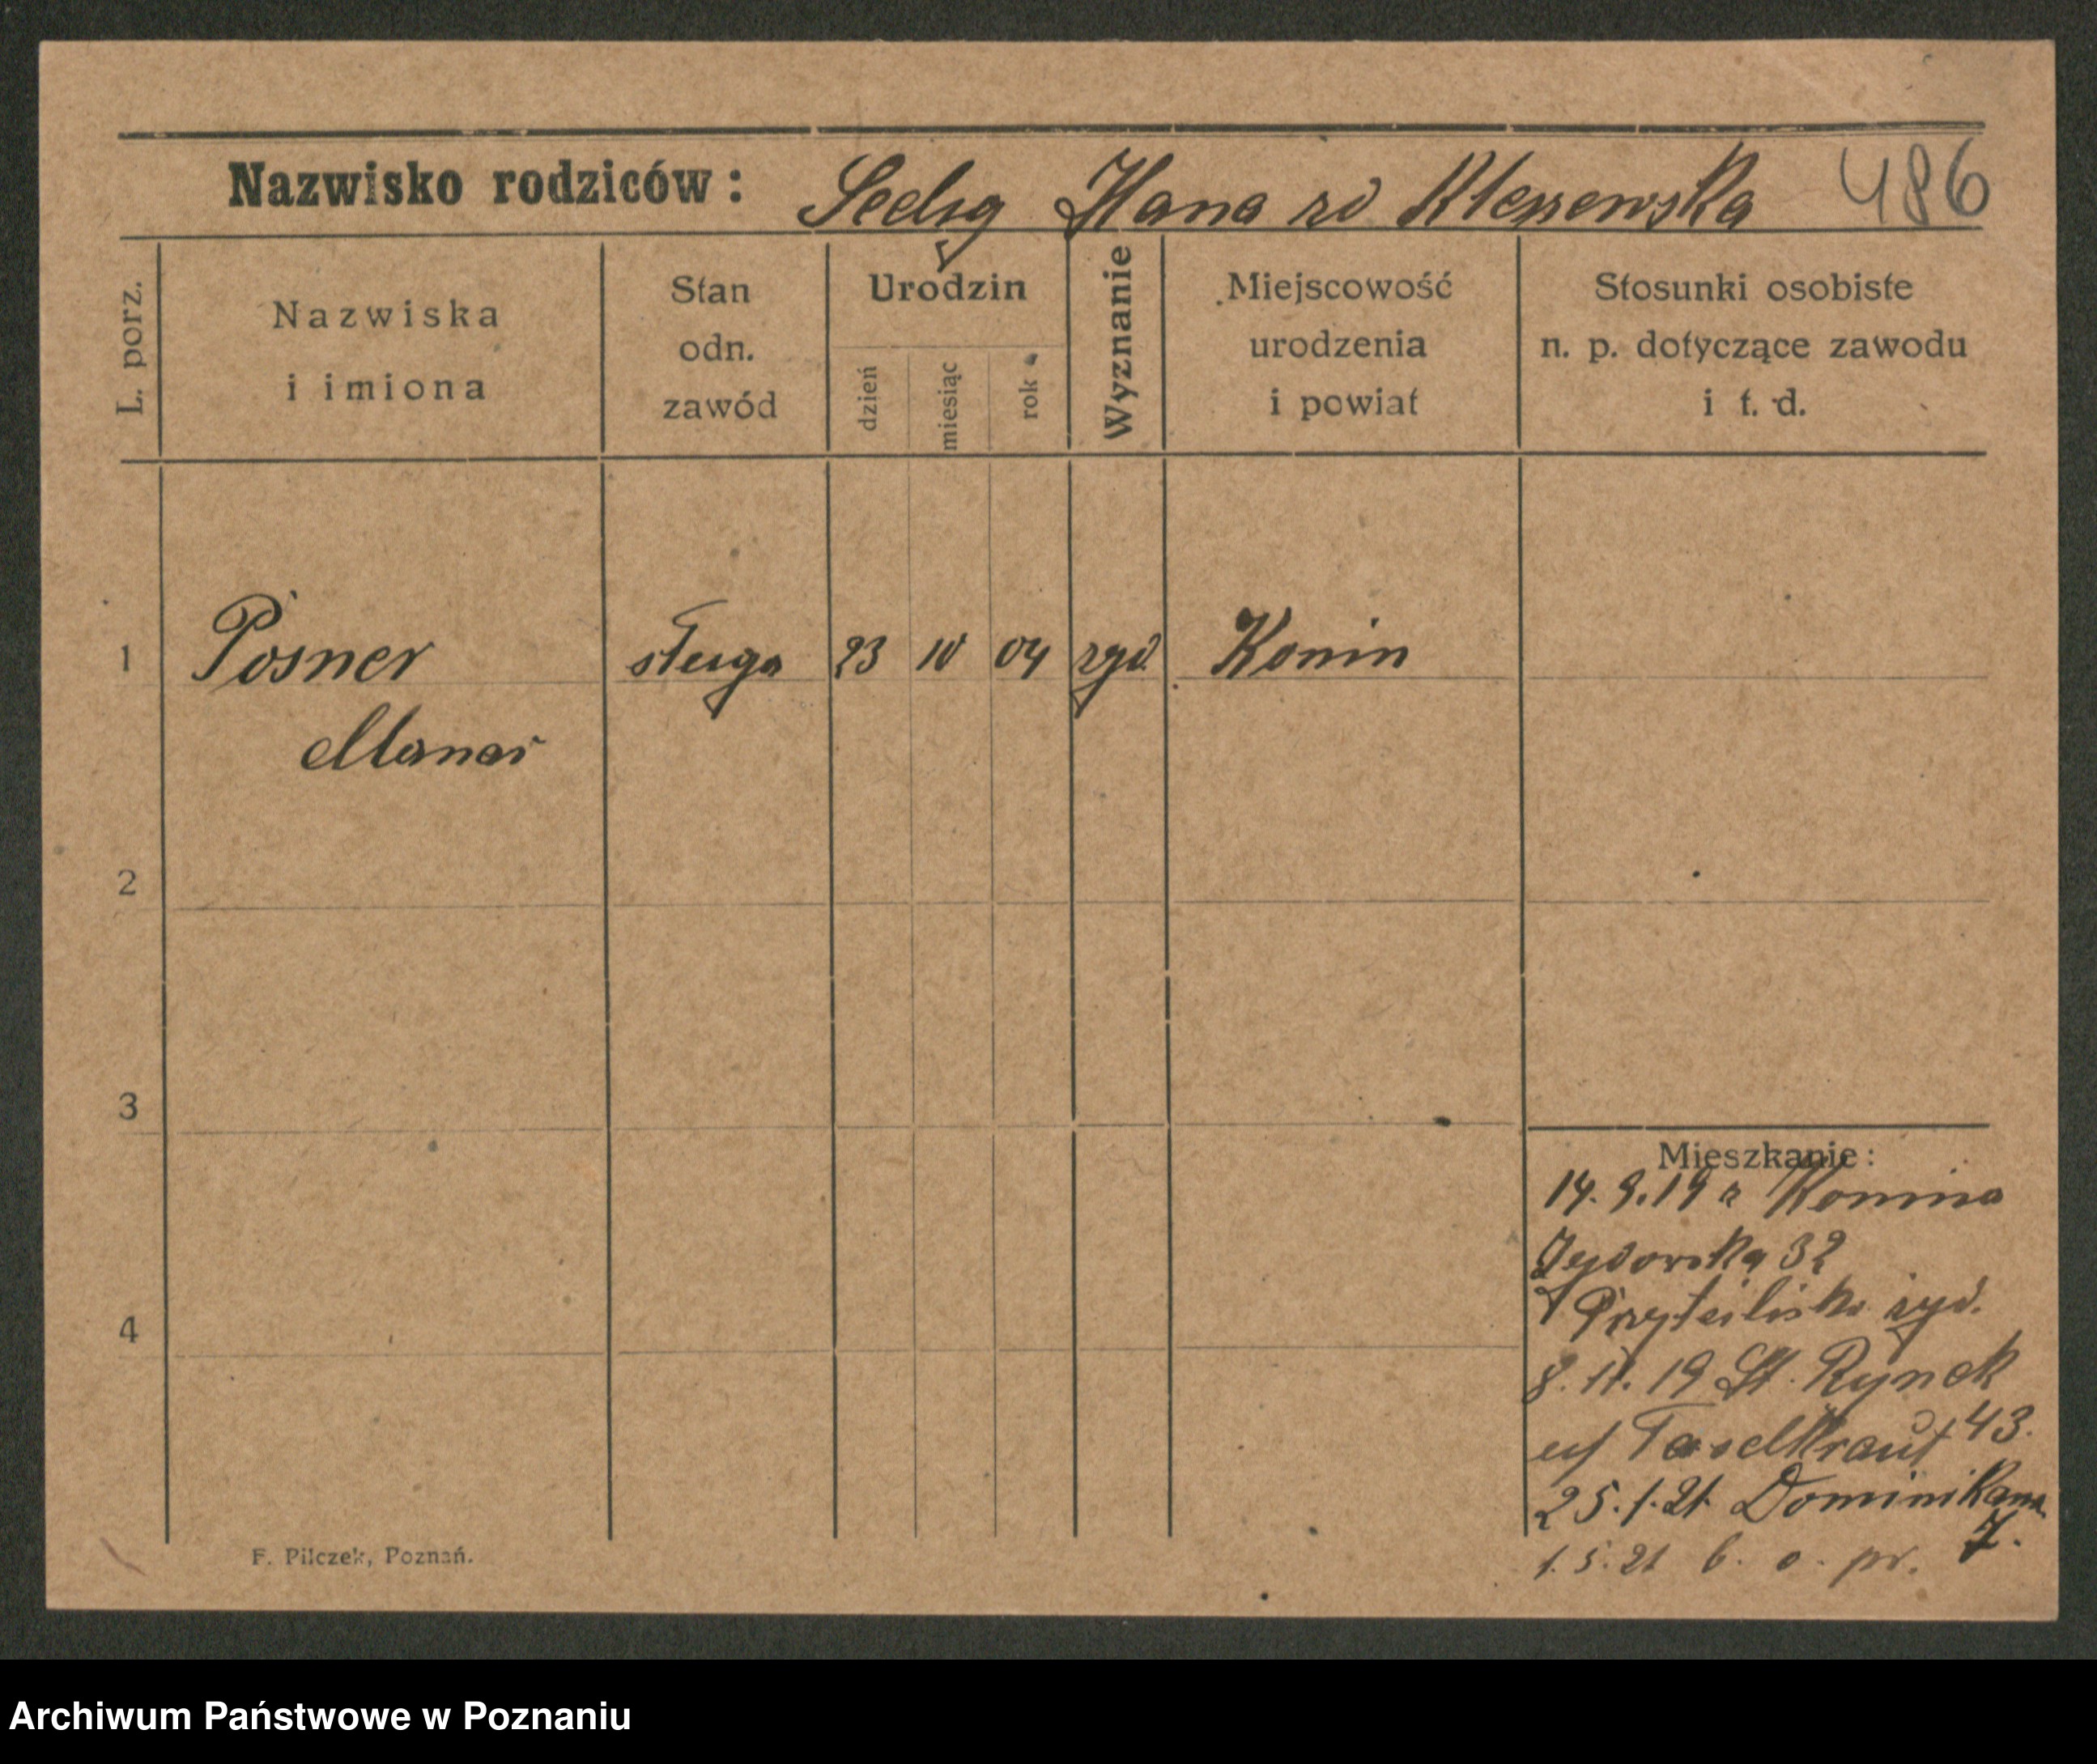 Nazwisko rodziców: Selig Hana zd Kleszewska 486
L. porz.
Nazwiska
i imiona
Stan
odn.
zawód
Urodzin
dzień
miesiąc
rok
Wyznanie
Miejscowość
urodzenia
i powiat
Stosunki osobiste
n. p. dotyczące zawodu
i t. d.
1 Posner sługa 23 10 04 żyd. Konin
2
3
4
Mieszkanie:
14. 9. 19 z Konina
Żydowska 32
Przytulisko żyd.
8. 11. 19 St. Rynek
43.
25. 1. 21 Dominikana
7.
1. 5. 21 b. o. pr.
F. Pilczek, Poznań.
Archiwum Państwowe w Poznaniu